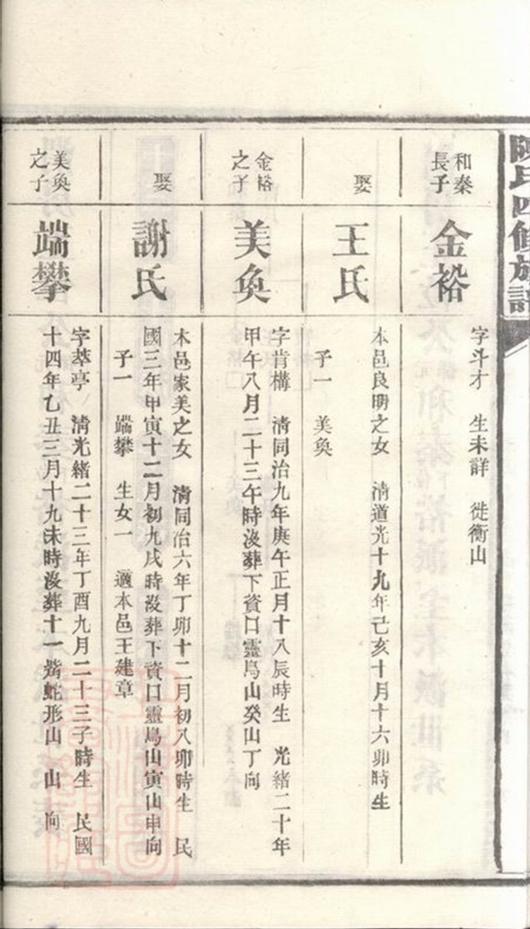 陳氏四修族譜
和秦
長子
金裕
字斗才 生未詳 徙衡山
娶
王氏
本邑良明之女 清道光十九年己亥十月十六卯時生
子一 美奐
金裕
之子
美奐
字肯構 清同治九年庚午正月十八辰時生 光緒二十年
甲午八月二十三午時沒葬下資口靈鳥山癸山丁向
娶
謝氏
本邑家美之女 清同治六年丁卯十二月初八卯時生 民
國三年甲寅十二月初九戌時沒葬下資口靈鳥山寅山申向
子一 端攀 生女一 適本邑王建章
美奐
之子
端攀
字萃亭 清光緒二十三年丁酉九月二十三子時生 民國
十四年乙丑三月十九未時沒葬十一觜蛇形山 山 向